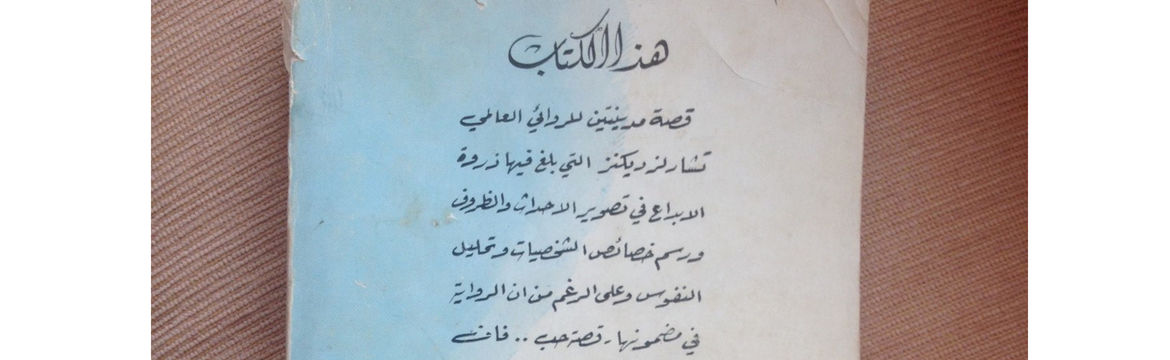 هذا الكتاب
قصة مدينتين للروائي العالمي
تشارلز ديكنز التي بلغ فيها ذروة
الابداع في تصوير الاحداث والظروف
ورسم خصائص الشخصيات وتحليل
النفوس وعلى الرغم من ان الرواية
في مضمونها، قصة حب .. فان